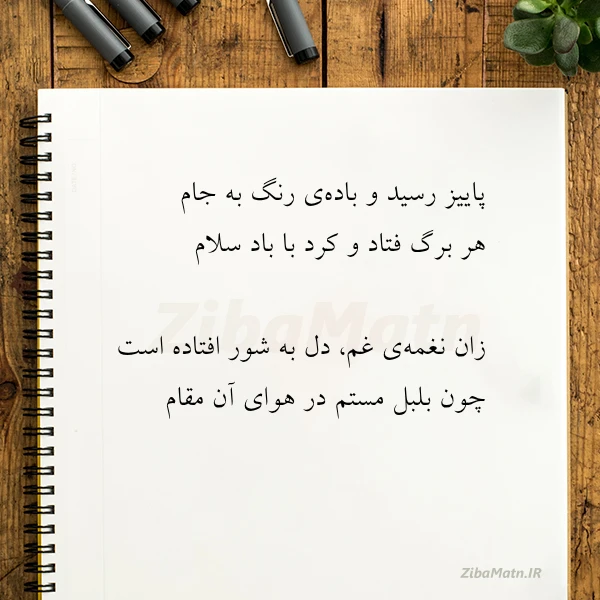 پاییز رسید و باده‌ی رنگ به جام
هر برگ فتاد و کرد با باد سلام
زان نغمه‌ی غم، دل به شور افتاده است
چون بلبل مستم در هوای آن مقام
ZibaMatn
ZibaMatn.IR